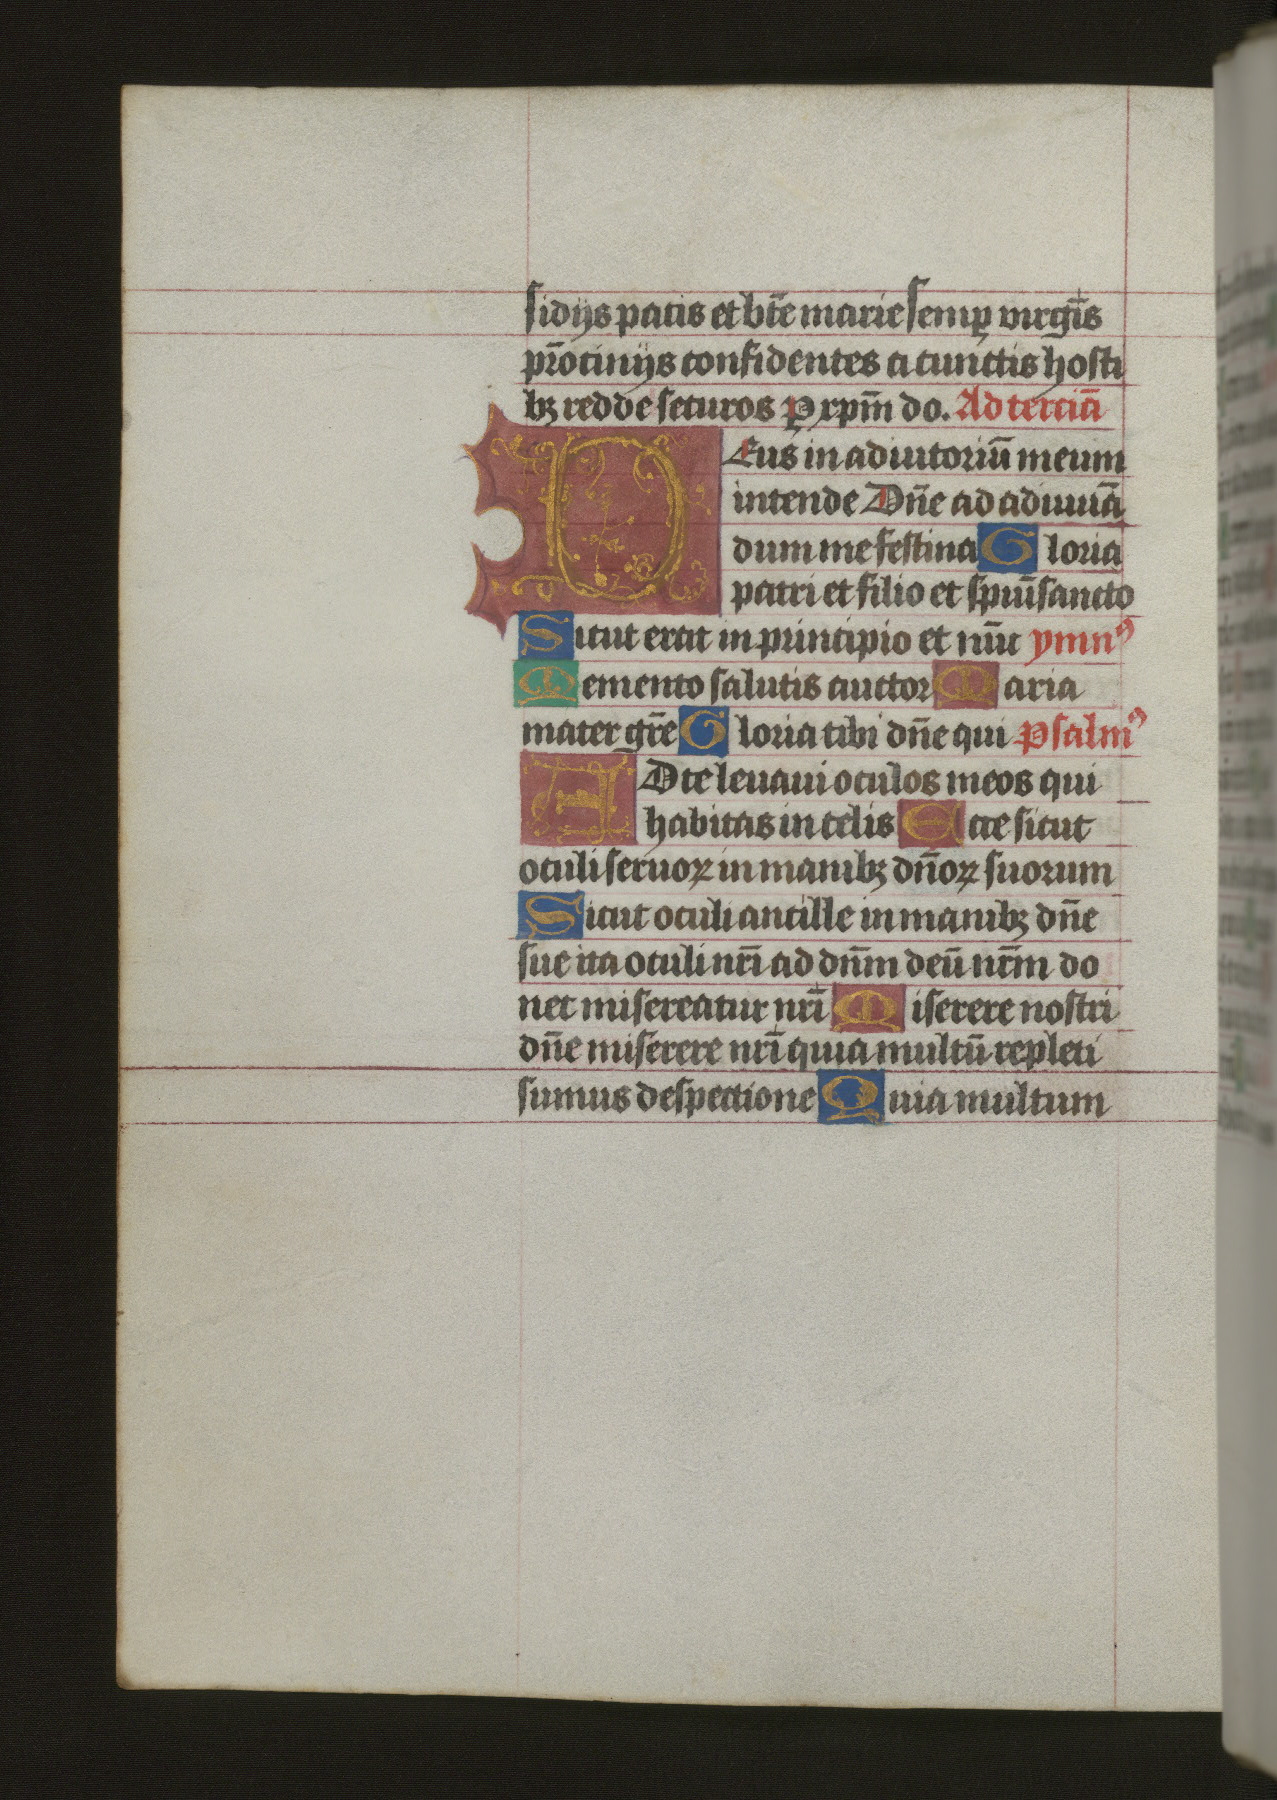 sidijs pacis et bt̄e marie semꝑ virgīs
pr̄ocinijs confidentes a cunctis hosti
bꝫ redde securos ꝑ xpm̄ do. Ad terciā
Deus in adiutoriū meum
intende Dn̄e ad adiuuā
dum me festina Gloria
patri et filio et spiūi sancto
Sicut erat in principio et nūc ymnꝰ
Memento salutis auctor Maria
mater gr̄e Gloria tibi dn̄e qui Psalmꝰ
AD te leuaui oculos meos qui
habitas in celis Ecce sicut
oculi seruoꝝ in manibꝫ dn̄oꝝ suorum
Sicut oculi ancille in manibꝫ dn̄e
sue ita oculi nr̄i ad dn̄m deū nr̄m do
nec misereatur nr̄i Miserere nostri
dn̄e miserere nr̄i quia multū repleti
sumus despectione Quia multum